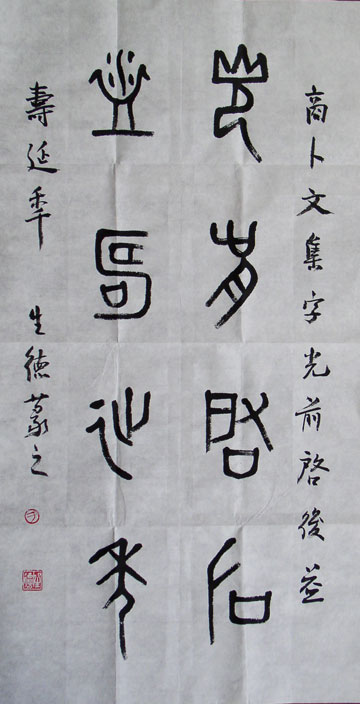 商卜文集字光前啓後益
光前启后
益壽延年
壽延年 生德篆之